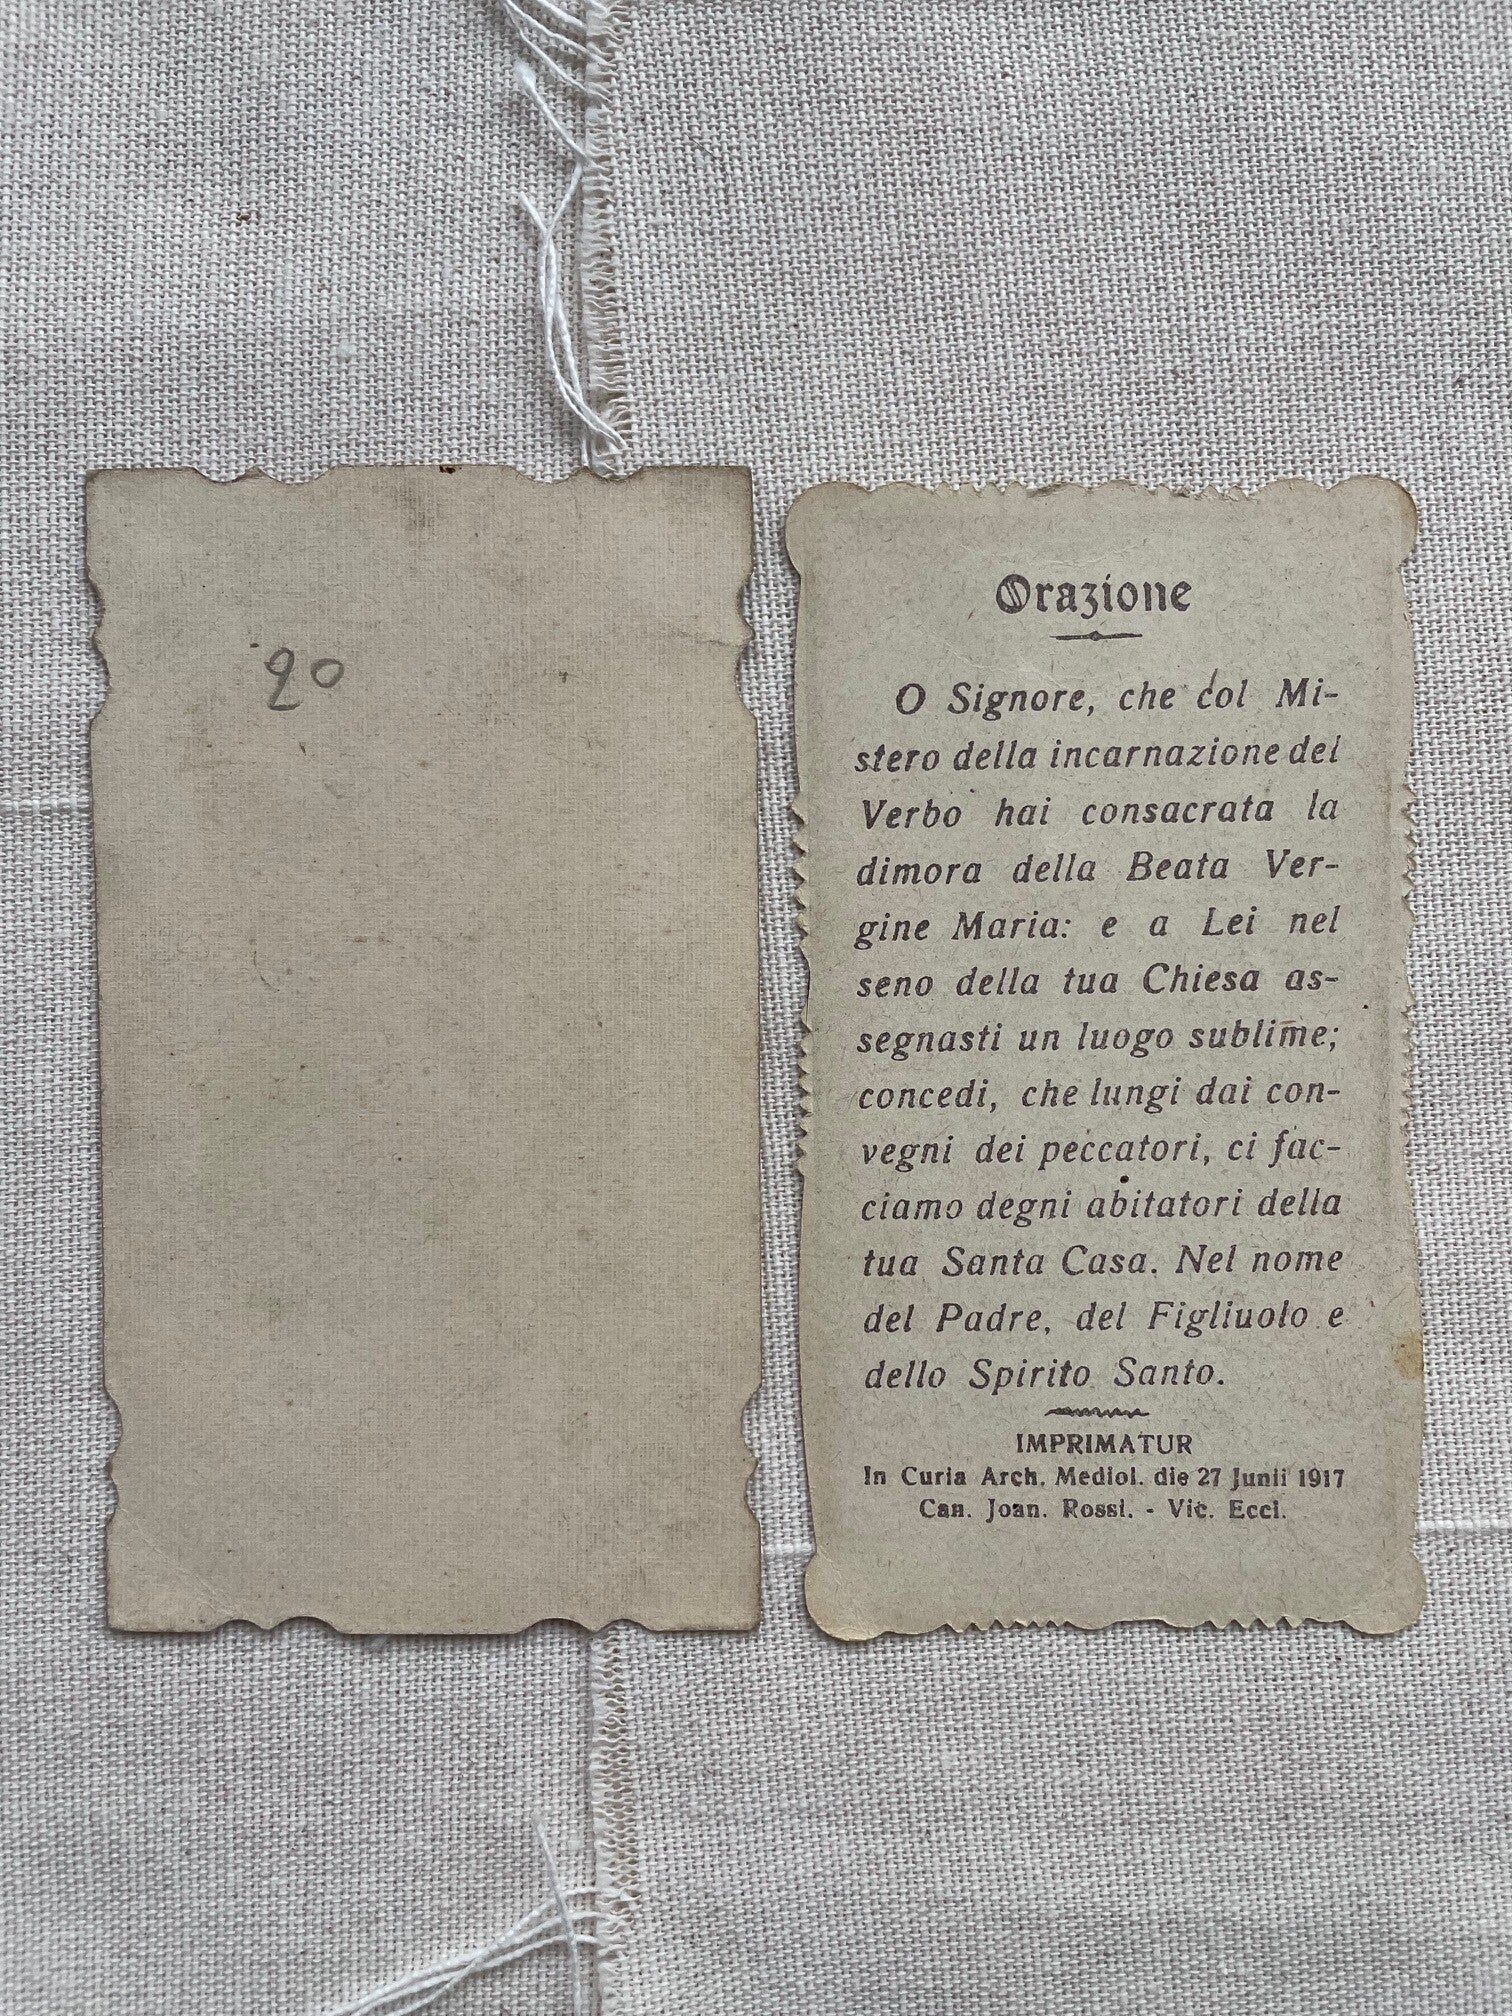 20
Orazione
O Signore, che col Mi-
stero della incarnazione del
Verbo hai consacrata la
dimora della Beata Ver-
gine Maria: e a Lei nel
seno della tua Chiesa as-
segnasti un luogo sublime;
concedi, che lungi dai con-
vegni dei peccatori, ci fac-
ciamo degni abitatori della
tua Santa Casa. Nel nome
del Padre, del Figliuolo e
dello Spirito Santo.
IMPRIMATUR
In Curia Arch. Mediol. die 27 Junii 1917
Can. Joan. Rossi. - Vic. Eccl.